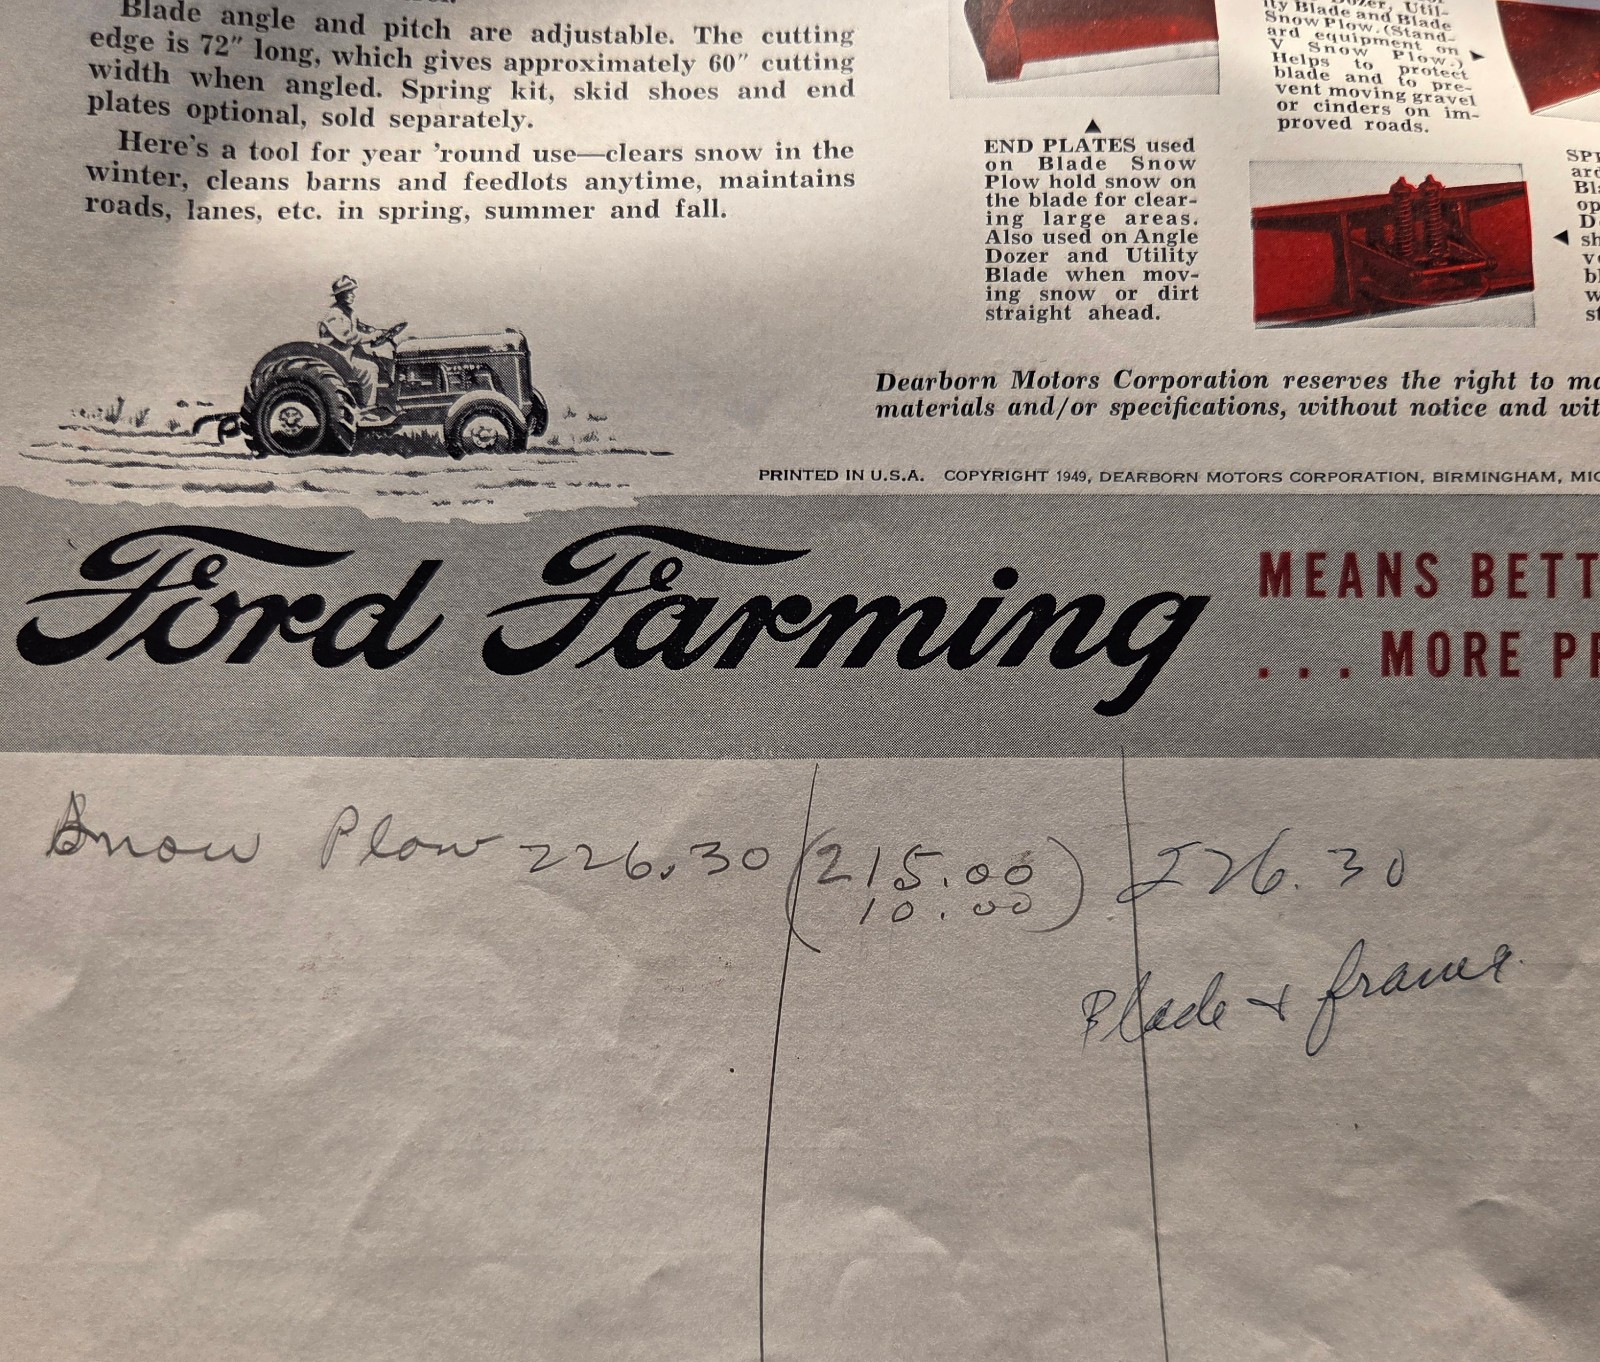 Blade angle and pitch are adjustable. The cutting
edge is 72" long, which gives approximately 60" cutting
width when angled. Spring kit, skid shoes and end
plates optional, sold separately.
Here's a tool for year 'round use—clears snow in the
winter, cleans barns and feedlots anytime, maintains
roads, lanes, etc. in spring, summer and fall.
END PLATES used
on Blade Snow
Plow hold snow on
the blade for clear-
ing large areas.
Also used on Angle
Dozer and Utility
Blade when mov-
ing snow or dirt
straight ahead.
Dozer, Util-
ity Blade and Blade
Snow Plow. (Stand-
ard equipment on
V Snow Plow.)
Helps to protect
blade and to pre-
vent moving gravel
or cinders on im-
proved roads.
Dearborn Motors Corporation reserves the right to
materials and/or specifications, without notice and
PRINTED IN U.S.A. COPYRIGHT 1949, DEARBORN MOTORS CORPORATION, BIRMINGHAM,
Ford Farming
MEANS BETT
... MORE PR
Snow Plow 226.30 (215.00) 226.30
10.00
Blade + frame